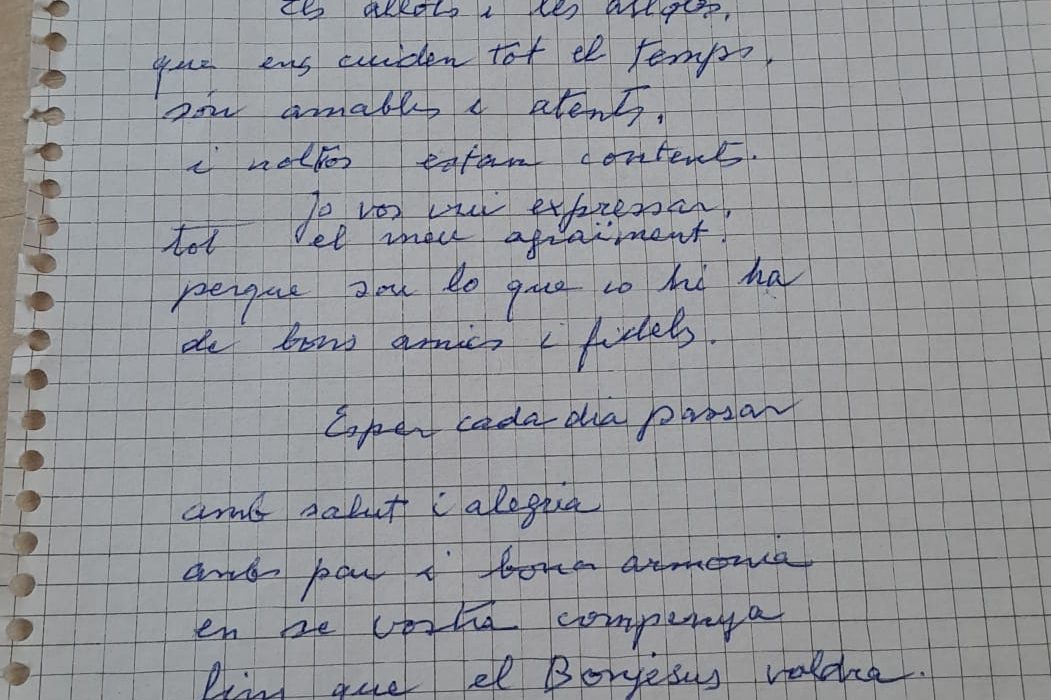 Els al·lots i les al·lotes,
que ens cuiden tot el temps,
són amables i atents,
i noltros estam contents.
Jo vos vui expressar,
tot el meu agraïment.
perque sou lo que co hi ha
de bons amics i fidels.
Esper cada dia passar
amb salut i alegria
amb pau i bona armonia
en se vostra compenya
fins que el Bonjesus voldra.